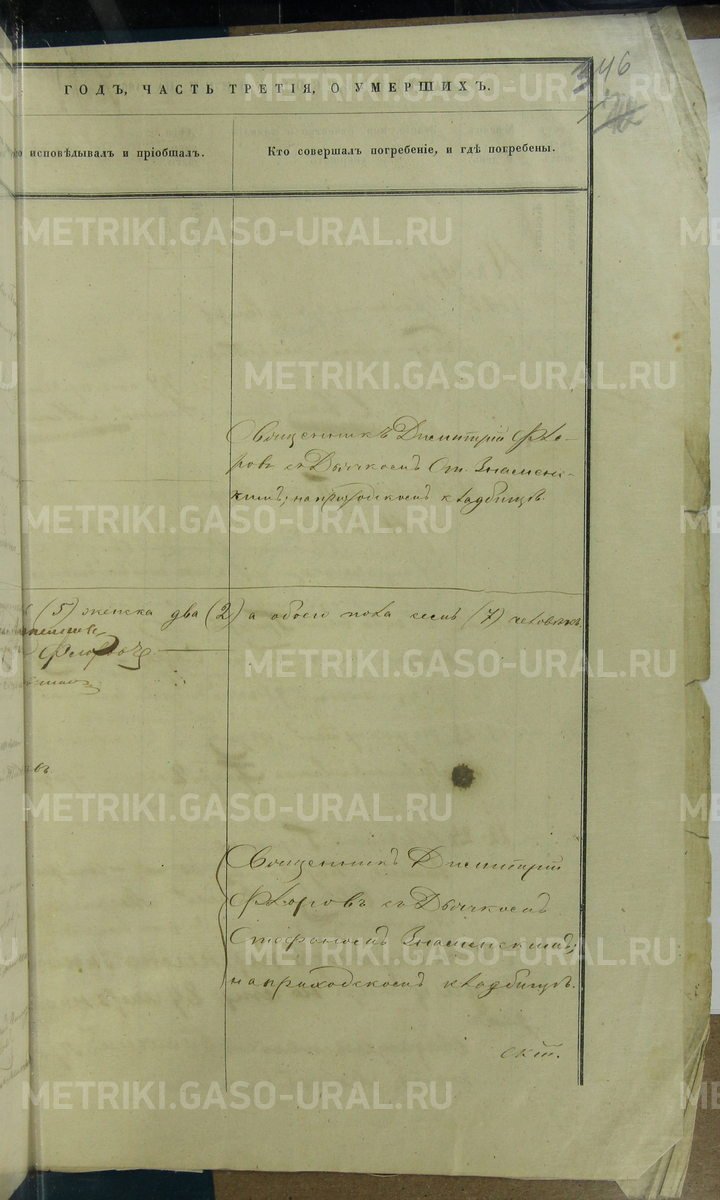 346
ГОДЪ, ЧАСТЬ ТРЕТІЯ, О УМЕРШИХЪ.
исповѣдывалъ и пріобщалъ.
Кто совершалъ погребеніе, и гдѣ погребены.
Священникъ Димитрій Фло-
ровъ съ Дьячкомъ Ст. Знаменс-
кимъ; на приходскомъ кладбищѣ.
(5) женска два (2) а обоего пола семь (7) человѣкъ.
Священникъ Димитрій
Флоровъ съ Дьячкомъ
Стефаномъ Знаменскимъ;
на приходскомъ кладбищѣ.
METRIKI.GASO-URAL.RU